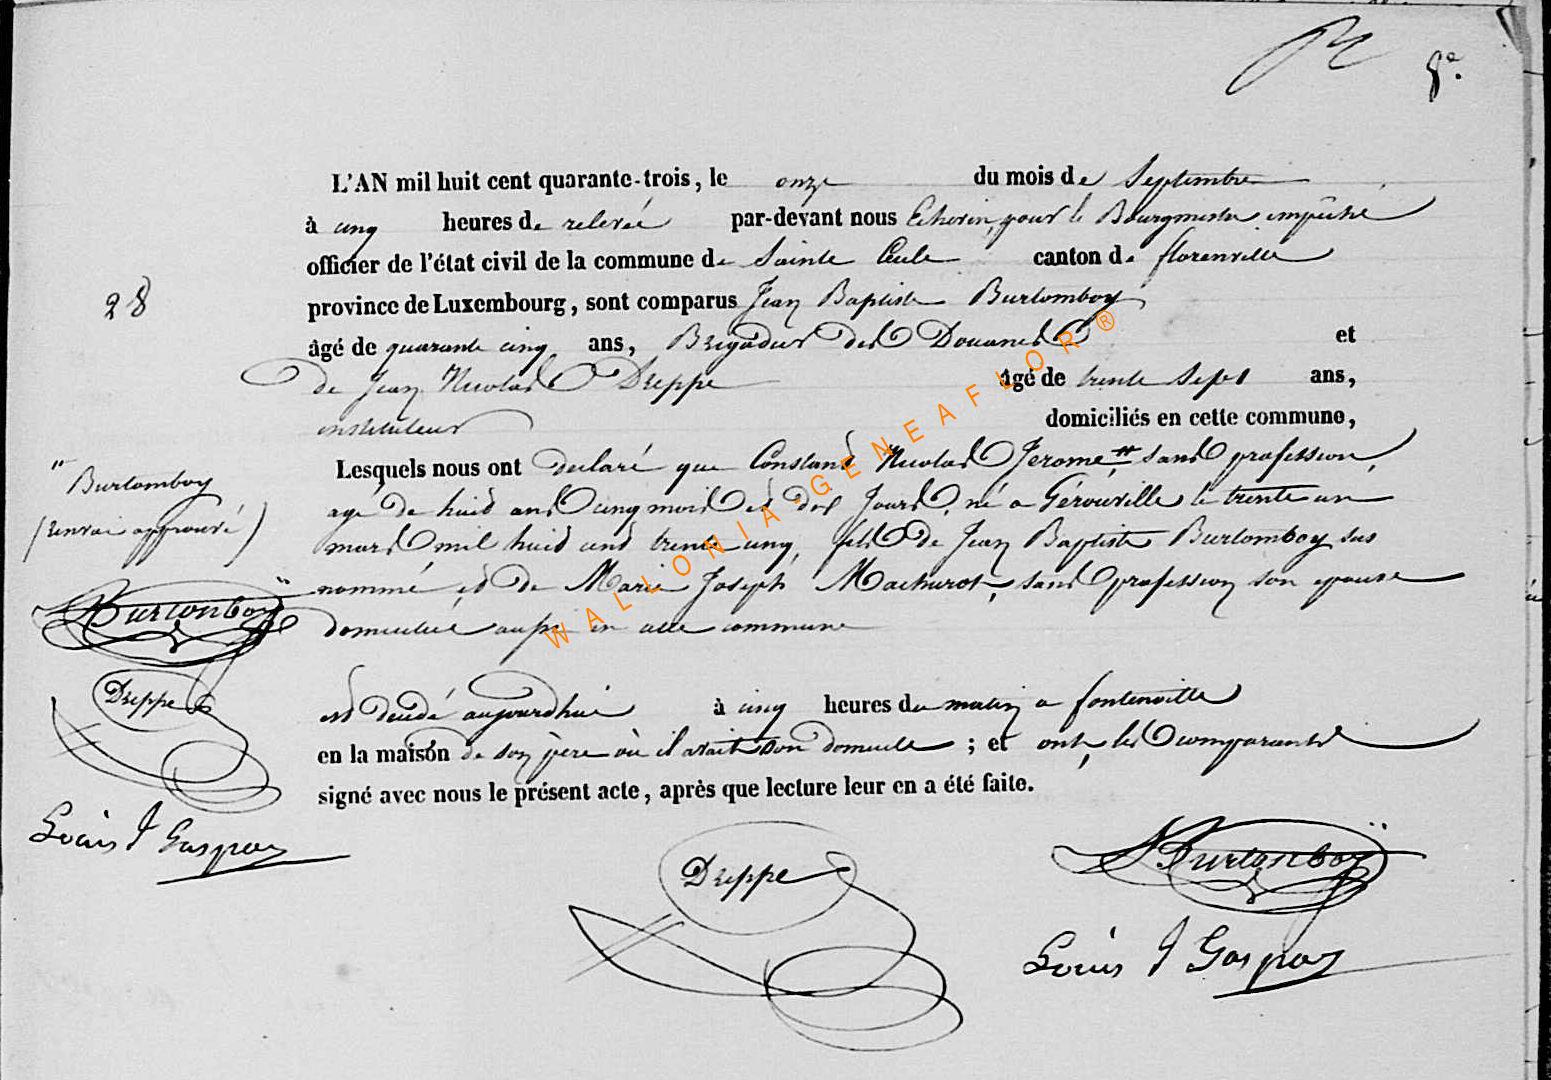 8e.
L'AN mil huit cent quarante-trois, le onze du mois de Septembre
à cinq heures de relevée par-devant nous Echevin, pour le Bourgmestre empêché
officier de l'état civil de la commune de Sainte Cecile canton de florenville
province de Luxembourg, sont comparus Jean Baptiste Burtomboy
âgé de quarante cinq ans, Brigadier des Douanes et
de Jean Nicolas Dreppe âgé de trente Sept ans,
instituteur domiciliés en cette commune,
Lesquels nous ont declaré que Constant Nicolas Jerome " sans profession,
agé de huit ans cinq mois et dix Jours, né a Gérouville le trente un
mars mil huit cent trente cinq, fils de Jean Baptiste Burtomboy sus
nommé, et de Marie Joseph Machurot, sans profession son epouse
domiciliée aussi en cette commune
est decedé aujourdhui à cinq heures du matin a fontenoille
en la maison de son père où il avait son domicile ; et ont, les comparants
signé avec nous le présent acte, après que lecture leur en a été faite.
28
" Burtomboy
(renvoi approuvé)
Burtonboy
Dreppe
Louis J Gaspar
Dreppe
Burtonboy
Louis J Gaspar
WALLONIA-GENEAFLOR ®